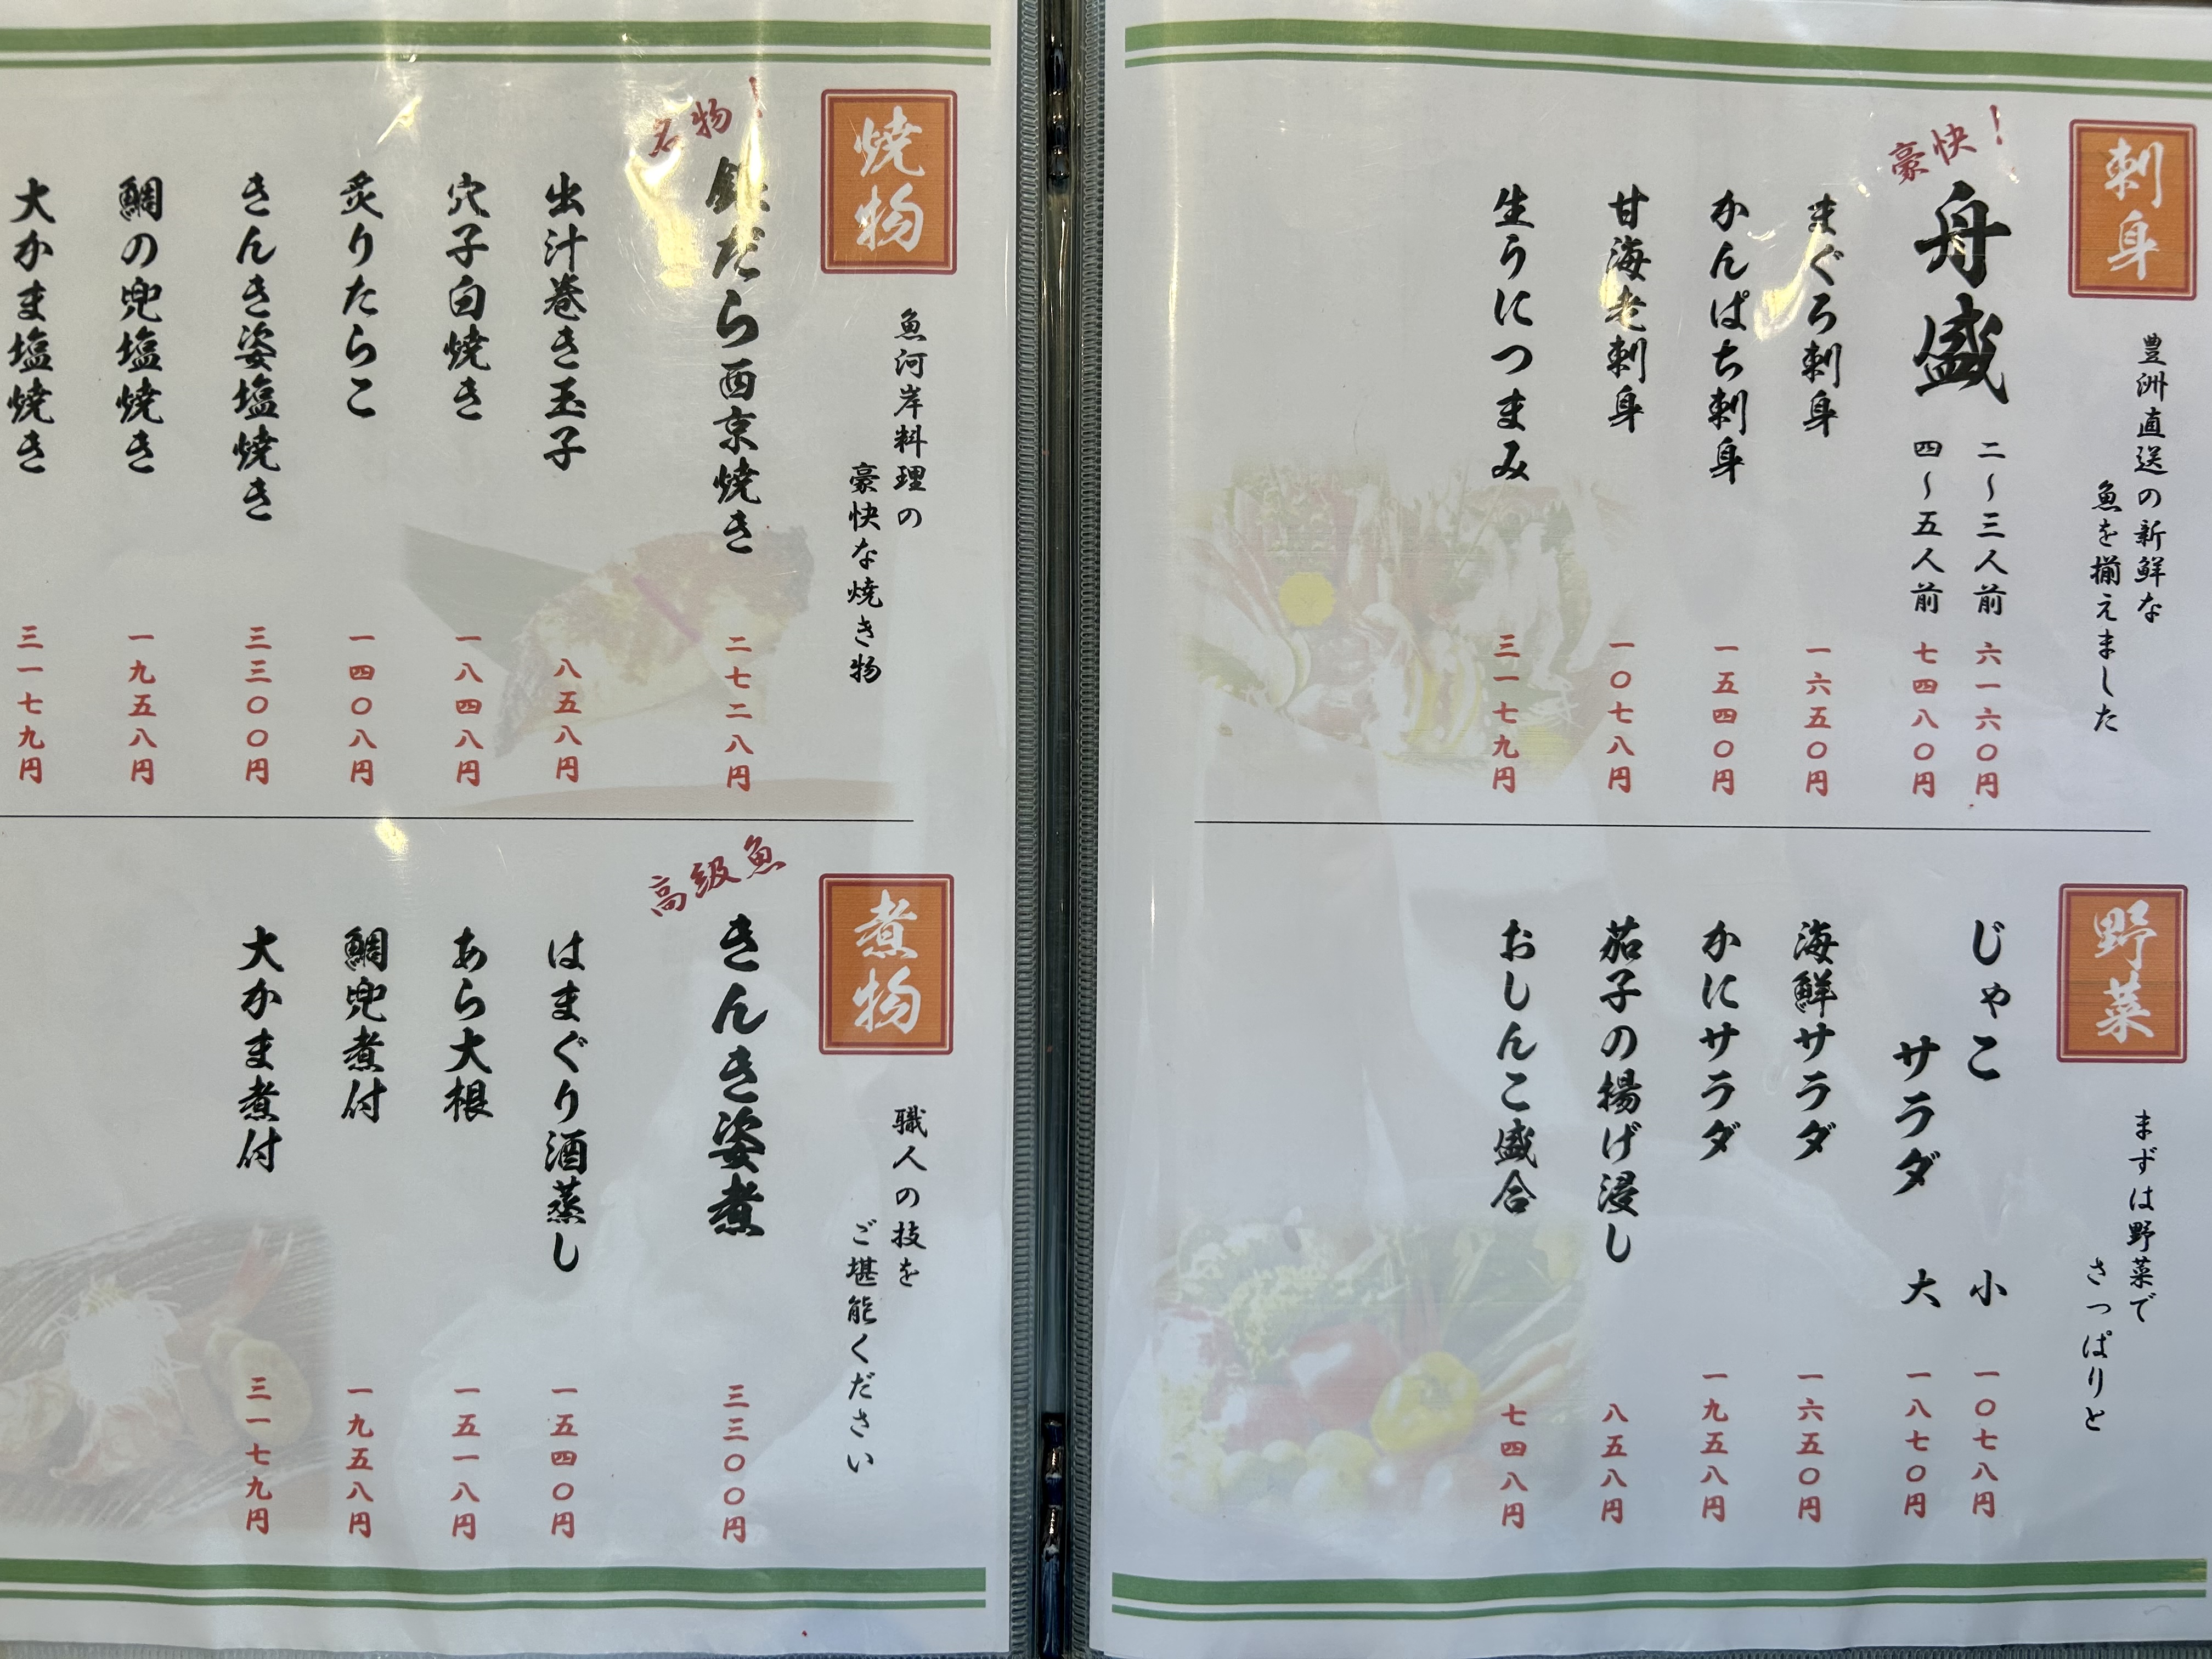 刺身
豊洲直送の新鮮な
魚を揃えました
豪快！
舟盛
二～三人前 六一六〇円
四～五人前 七四八〇円
まぐろ刺身 一六五〇円
かんぱち刺身 一五四〇円
甘海老刺身 一〇七八円
生うにつまみ 三一七九円
野菜
まずは野菜で
さっぱりと
じゃこ
サラダ
小 一〇七八円
大 一八七〇円
海鮮サラダ 一六五〇円
かにサラダ 一九五八円
茄子の揚げ浸し 八五八円
おしんこ盛合 七四八円
焼物
魚河岸料理の
豪快な焼き物
名物！
銀だら西京焼き 二七二八円
出汁巻き玉子 八五八円
穴子白焼き 一八四八円
炙りたらこ 一四〇八円
きんき姿塩焼き 三三〇〇円
鯛の兜塩焼き 一九五八円
大かま塩焼き 三一七九円
煮物
職人の技を
ご堪能ください
高級魚
きんき姿煮 三三〇〇円
はまぐり酒蒸し 一五四〇円
あら大根 一五一八円
鯛兜煮付 一九五八円
大かま煮付 三一七九円